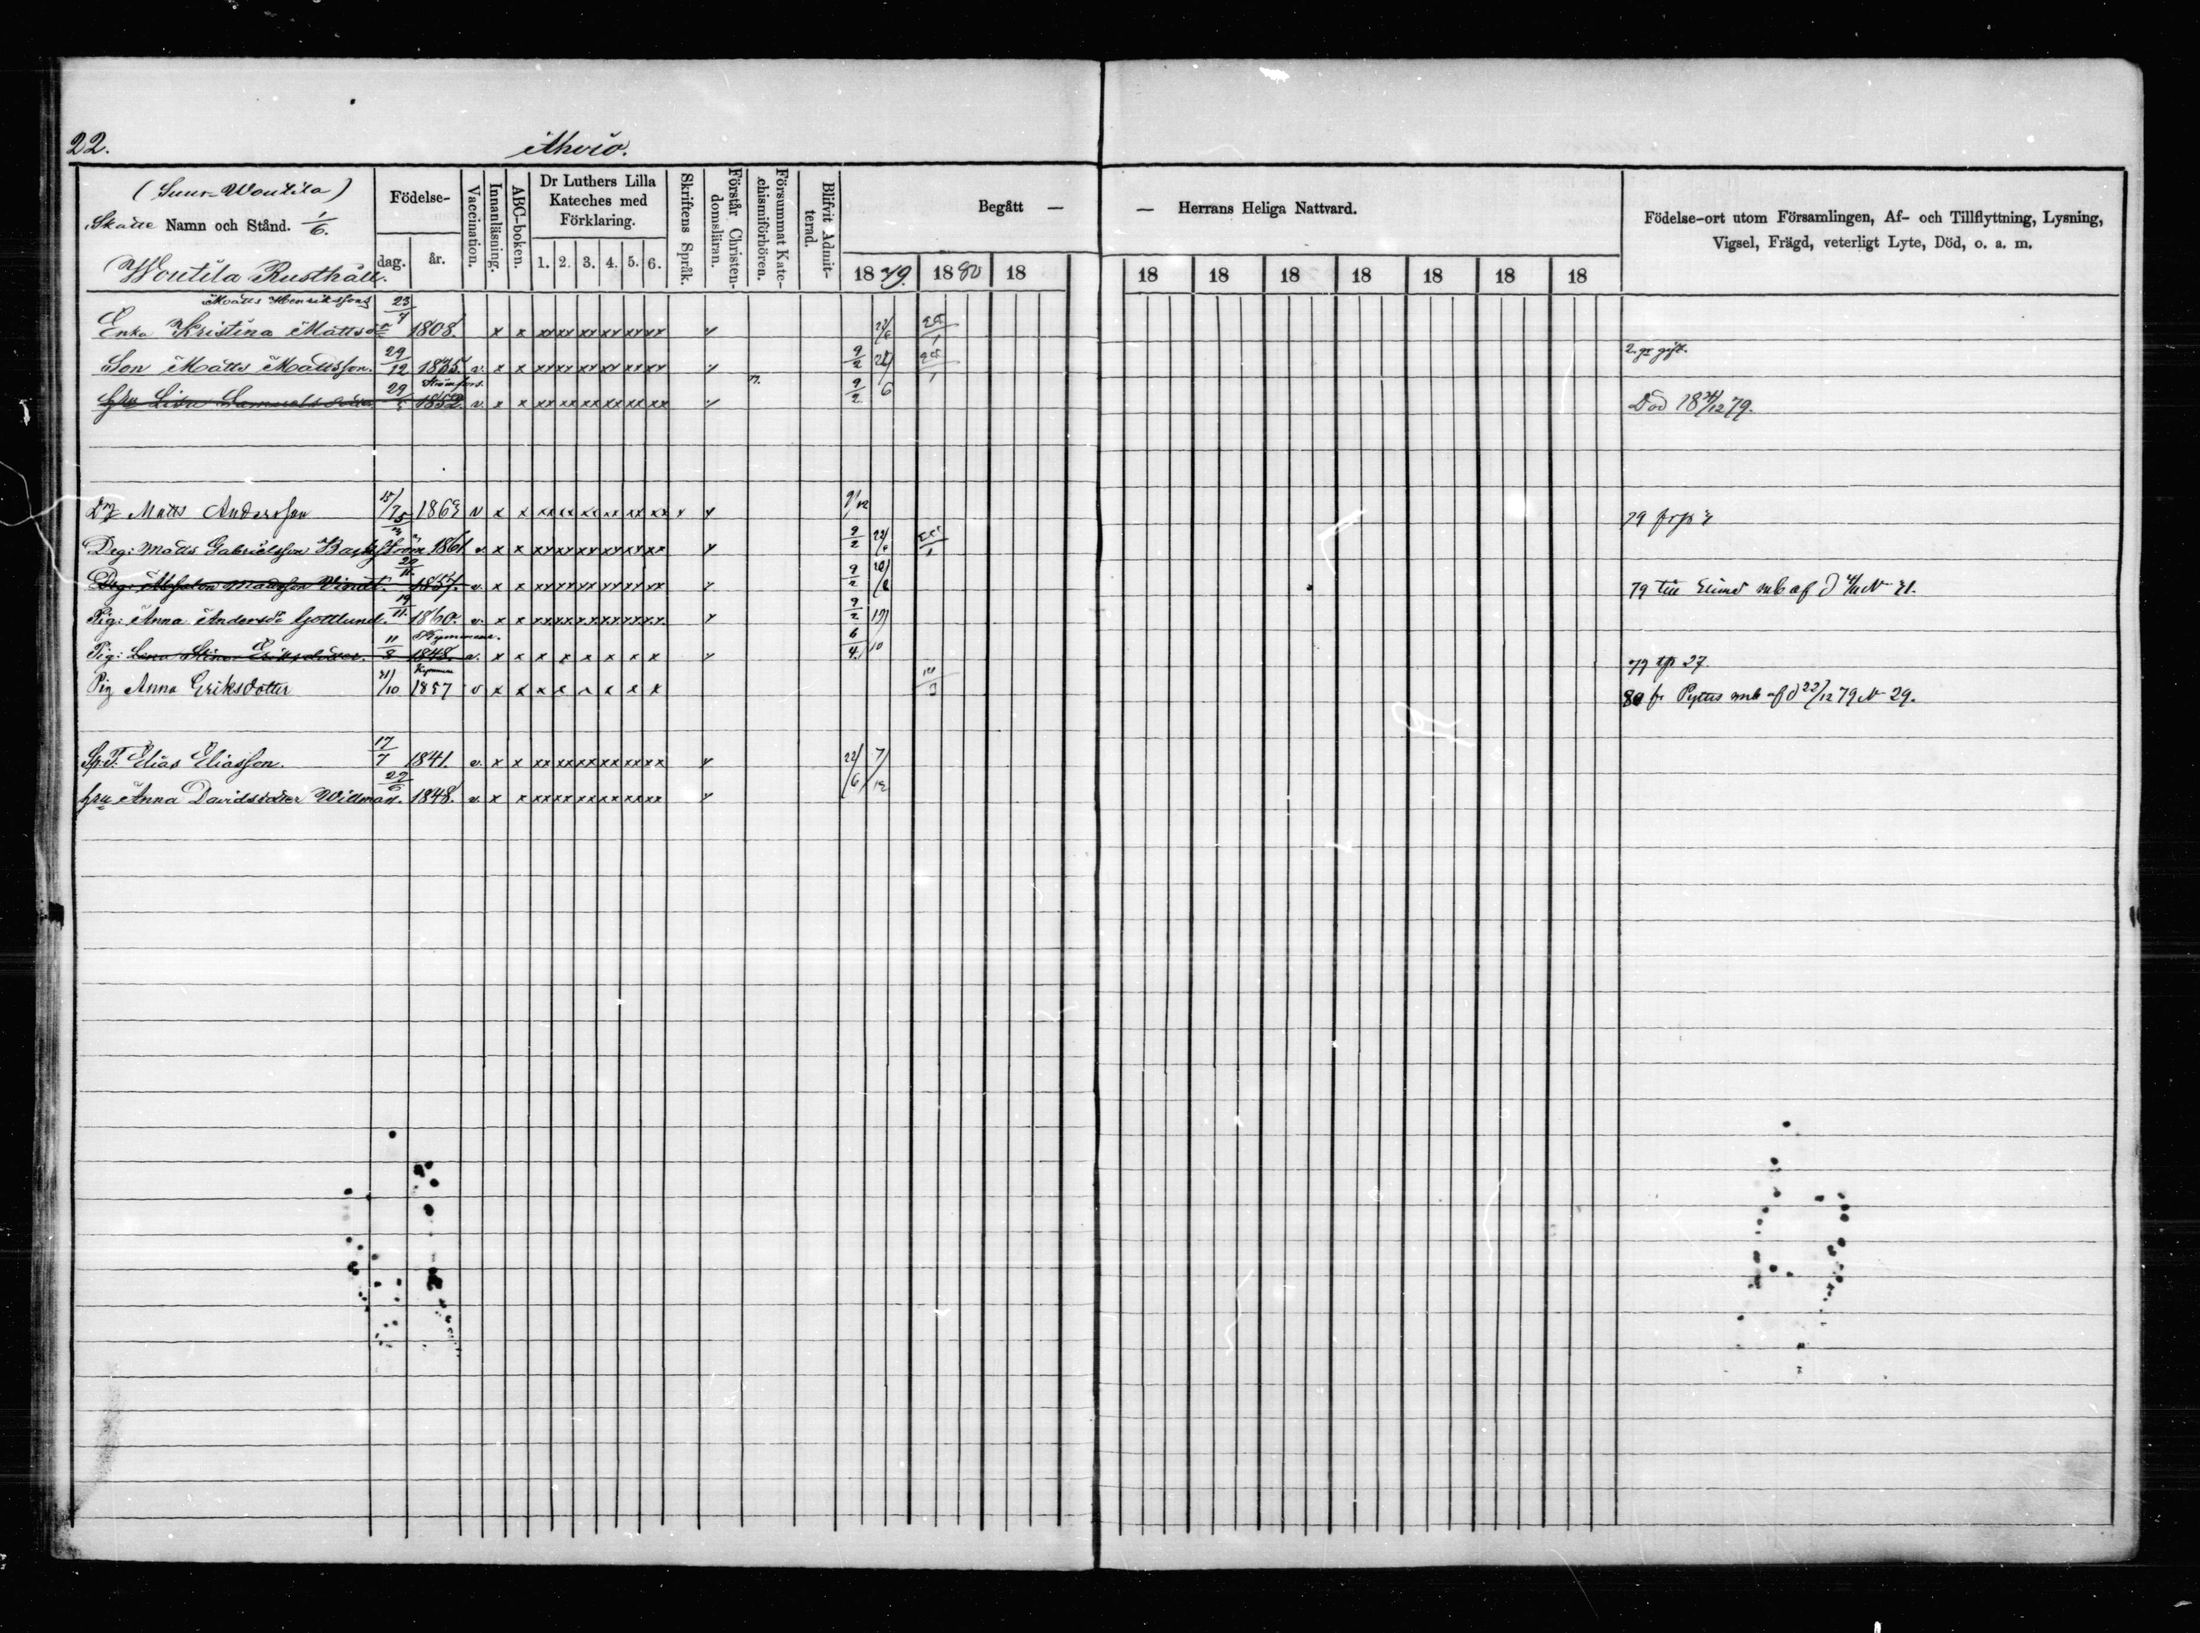 22.
Ahvio.
(Suur-Woutila)
Skatte Namn och Stånd. 1/6.
Woutila Rusthåll.
Födelse-
dag.
år.
Vaccination.
Innanläsning.
ABC-boken.
Dr Luthers Lilla
Kateches med
Förklaring.
1. 2. 3. 4. 5. 6.
Skriftens Språk.
Förstår Christen-
domsläran.
Försummat Kate-
chismiförhören.
Blifvit Admit-
terad.
Begått —
— Herrans Heliga Nattvard.
1879. 1880 18
18 18 18 18 18 18 18
Födelse-ort utom Församlingen, Af- och Tillflyttning, Lysning,
Vigsel, Frägd, veterligt Lyte, Död, o. a. m.
Matts Henrikssons
Enka Kristina Mattsdr 23/7 1808. x x xx xx xx xx xx xx
Son Matts Mattsson. 29/12 1835. v. x x xx xx xx xx xx xx 9/2 2. gr gift.
Strömfors.
hu Lisa Samuelsdotter 29/5 1852. v. x x xx xx xx xx xx xx 9/2 Död 18 /12 79.
Matts Andersson v x x xx xx xx xx xx xx 9/12 79
Dreg: Matts Gabrielsson Backström 1861 v. x x xx xx xx xx xx xx 9/2
Dreg: Mattsson 22/11. 1857. v. x x xx xx xx xx xx xx 9/2 79 till Elimä mb af
Pig: Anna Andersdr Gottlund. 19/11. 1860. v. x x xx xx xx xx xx xx 9/2
Kymmene.
Pig: Lena Stina Eriksdotter. 11/8 1848. v. x x x x x x x x 6/4. 10 79 27.
Kymmene
Pig Anna Eriksdotter 1857 v x x x x x x x x 80 fr Pyttis mb af d 22/12 79 N 29.
Sp.T. Elias Eliasson. 17/7 1841. v. x x xx xx xx xx xx xx 22/6 7/12
hu Anna Davidsdotter Willman. 27/6 1848. v. x x xx xx xx xx xx xx